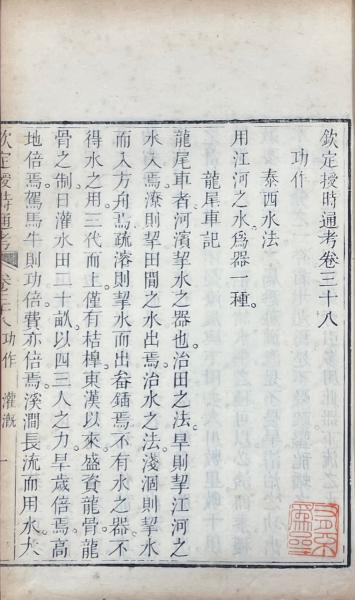 欽定授時通考卷三十八
功作
泰西水法
用江河之水爲器一種
龍尾車記
龍尾車者河濱挈水之器也治田之法旱則挈江河之
水入焉潦則挈田間之水出焉治水之法淺涸則挈水
而入方舟焉疏溶則挈水而出畚鍤焉不有水之器不
得水之用三代而上僅有桔槔東漢以來盛資龍骨龍
骨之制日灌水田二十畝以四三人之力旱歲倍焉高
地倍焉駕馬牛則功倍費亦倍焉溪澗長流而用水大
欽定授時通考 卷三十八 功作 灌溉 一